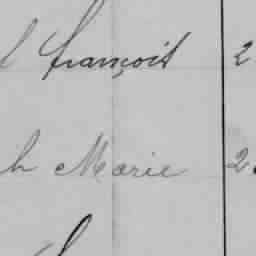 l françois 2
h Marie 2